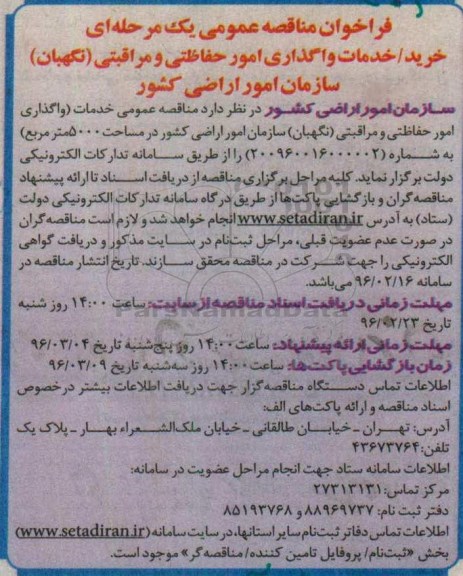 فراخوان مناقصه عمومی یک مرحله‌ای
خرید/خدمات واگذاری امور حفاظتی و مراقبتی (نگهبان)
سازمان امور اراضی کشور
سازمان امور اراضی کشور در نظر دارد مناقصه عمومی خدمات (واگذاری
امور حفاظتی و مراقبتی (نگهبان) سازمان امور اراضی کشور در مساحت ۵۰۰۰متر مربع)
به شماره (۲۰۰۹۶۰۰۱۶۰۰۰۰۰۲) را از طریق سامانه تدارکات الکترونیکی
دولت برگزار نماید. کلیه مراحل برگزاری مناقصه از دریافت اسناد تا ارائه پیشنهاد
مناقصه‌گران و بازگشایی پاکت‌ها از طریق درگاه سامانه تدارکات الکترونیکی دولت
(ستاد) به آدرس www.setadiran.ir انجام خواهد شد و لازم است مناقصه‌گران
در صورت عدم عضویت قبلی، مراحل ثبت‌نام در سایت مذکور و دریافت گواهی
الکترونیکی را جهت شرکت در مناقصه محقق سازند. تاریخ انتشار مناقصه در
سامانه ۹۶/۰۲/۱۶ می‌باشد.
مهلت زمانی دریافت اسناد مناقصه از سایت: ساعت ۱۴:۰۰ روز شنبه
تاریخ ۹۶/۰۲/۲۳
مهلت زمانی ارائه پیشنهاد: ساعت ۱۴:۰۰ روز پنج‌شنبه تاریخ ۹۶/۰۳/۰۴
زمان بازگشایی پاکت‌ها: ساعت ۱۴:۰۰ روز سه‌شنبه تاریخ ۹۶/۰۳/۰۹
اطلاعات تماس دستگاه مناقصه‌گزار جهت دریافت اطلاعات بیشتر درخصوص
اسناد مناقصه و ارائه پاکت‌های الف:
آدرس: تهران ـ خیابان طالقانی ـ خیابان ملک‌الشعراء بهار ـ پلاک یک
تلفن: ۴۳۶۷۳۷۶۴
اطلاعات سامانه ستاد جهت انجام مراحل عضویت در سامانه:
مرکز تماس: ۲۷۳۱۳۱۳۱
دفتر ثبت نام: ۸۸۹۶۹۷۳۷ و ۸۵۱۹۳۷۶۸
اطلاعات تماس دفاتر ثبت‌نام سایر استانها، در سایت سامانه (www.setadiran.ir)
بخش «ثبت‌نام/ پروفایل تامین کننده/ مناقصه‌گر» موجود است.
ParsNamadData